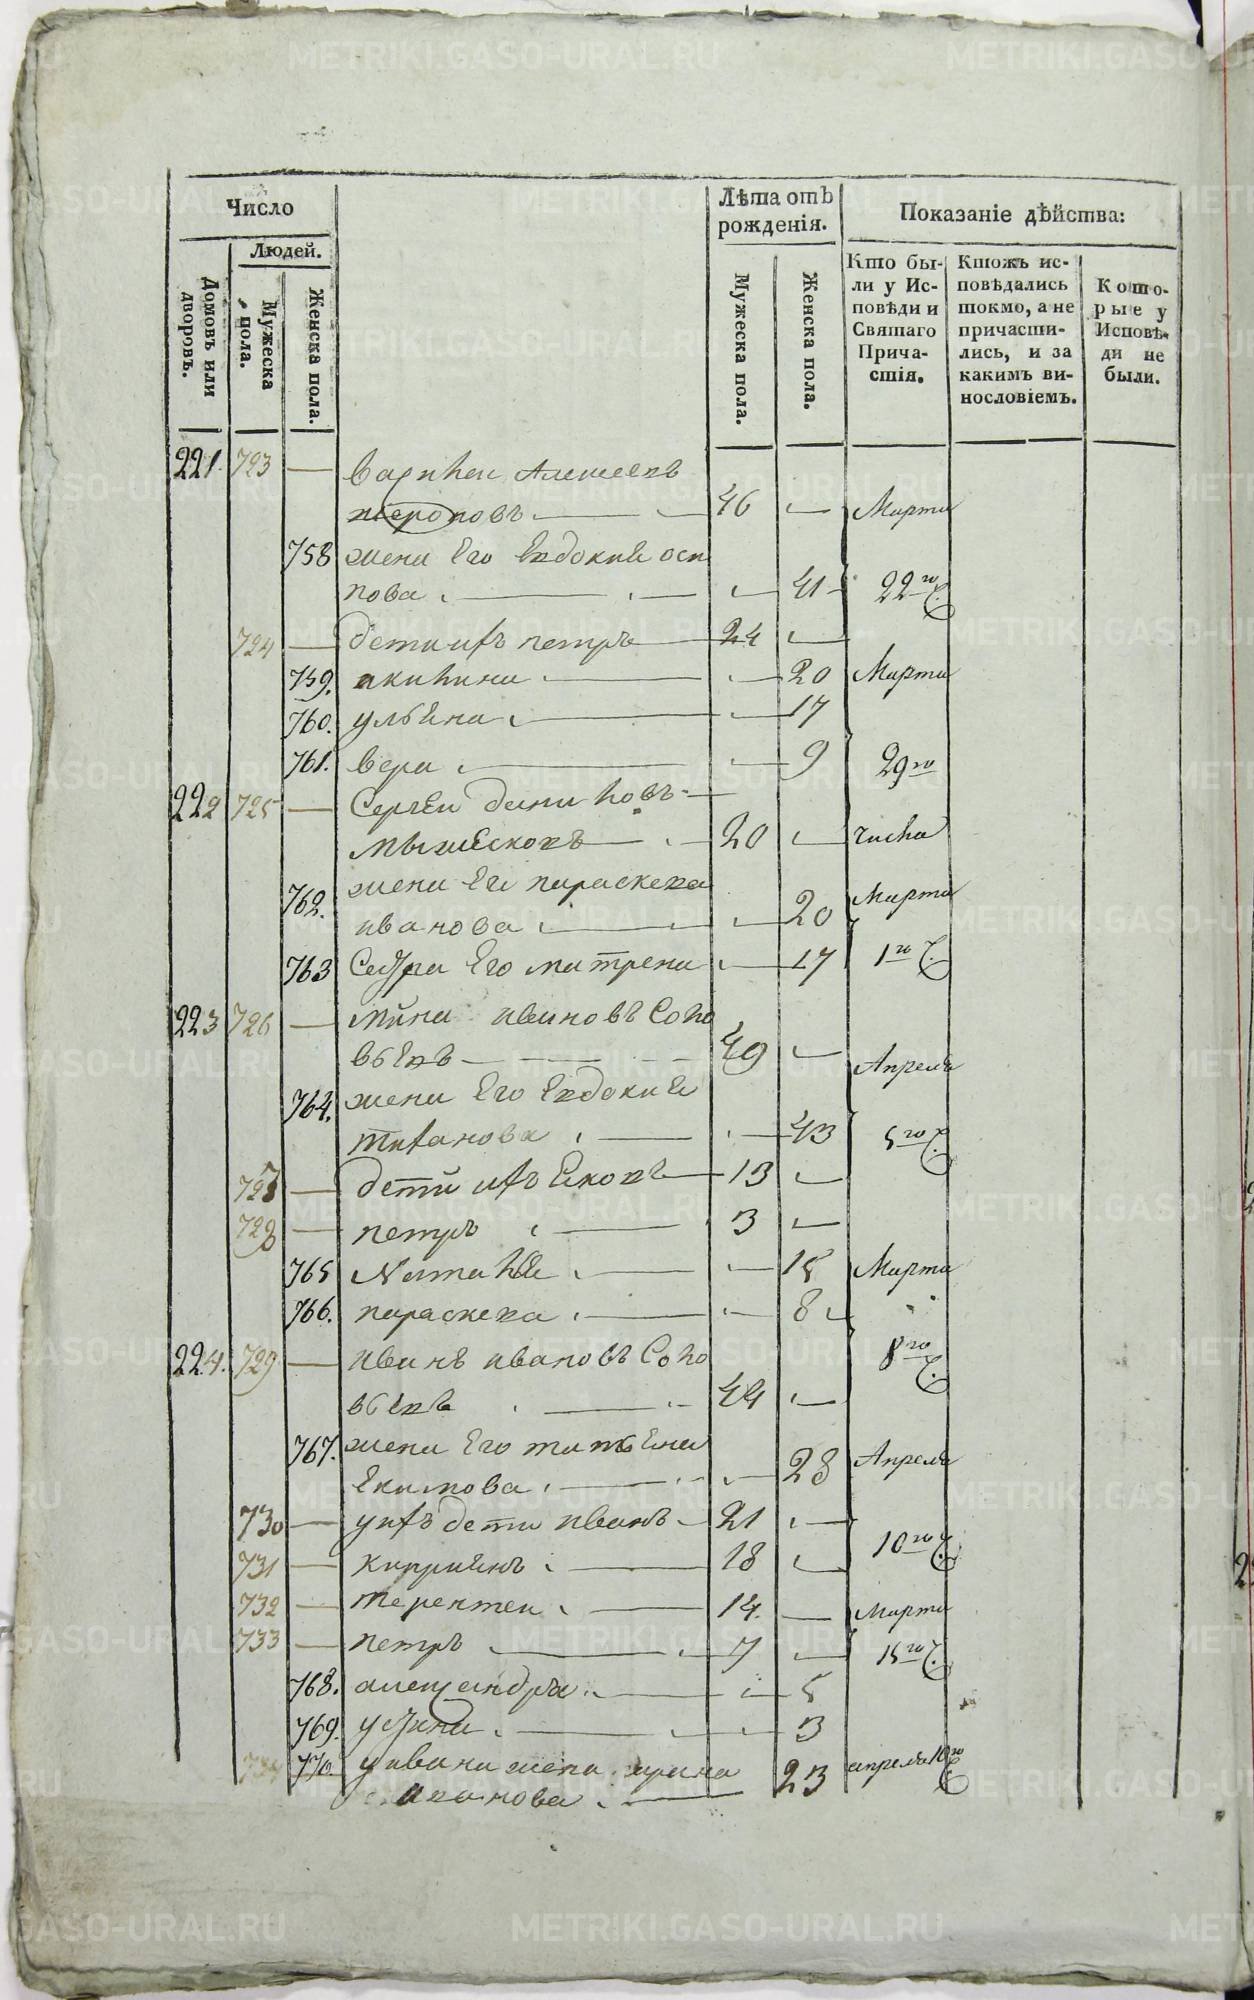 Число
Людей.
Домовъ или дворовъ.
Мужеска пола.
Женска пола.
Лѣта отъ рожденія.
Мужеска пола.
Женска пола.
Показаніе дѣйства:
Кто были у Исповѣди и Святаго Причастія.
Ктожъ исповѣдались токмо, а не причастились, и за какимъ винословіемъ.
Которые у Исповѣди не были.
221. 723 — Алексеевъ
46 — Марта
758 жена Его Евдокия оси
пова — — 41 22го Ч.
724 — дети ихъ петръ — 24 —
759. акилина — — 20 Марта
760. улияна — — 17
761. вера — — 9 29го
222 725 — Сергеи даниловъ —
20 — числа
762. жена Его параскева Марта
иванова — — 20
763 Сестра Его матрена — 17 1го Ч.
223 726 — Мина ивановъ Соло
вьевъ — 49 — Апреля
764. жена Его Евдокия
— — 43 5го Ч.
727 — дети ихъ Яковъ — 13 —
728 — петръ — 3 —
765 Наталья — — 15 Марта
766. параскева — — 8
224. 729 — иванъ ивановъ Соло 8го Ч.
вьевъ — 44 —
767. жена Его татьяна
Екимова — — 28 Апреля
730 — у ихъ дети иванъ — 21 —
731 — киприянъ — 18 — 10го Ч.
732 — терентеи — 14. — Марта
733 — петръ — 7 — 15го Ч.
768. александра — — 5
769. устина — — 3
734 770. у ивана жена ирина 23 апреля 10го Ч.